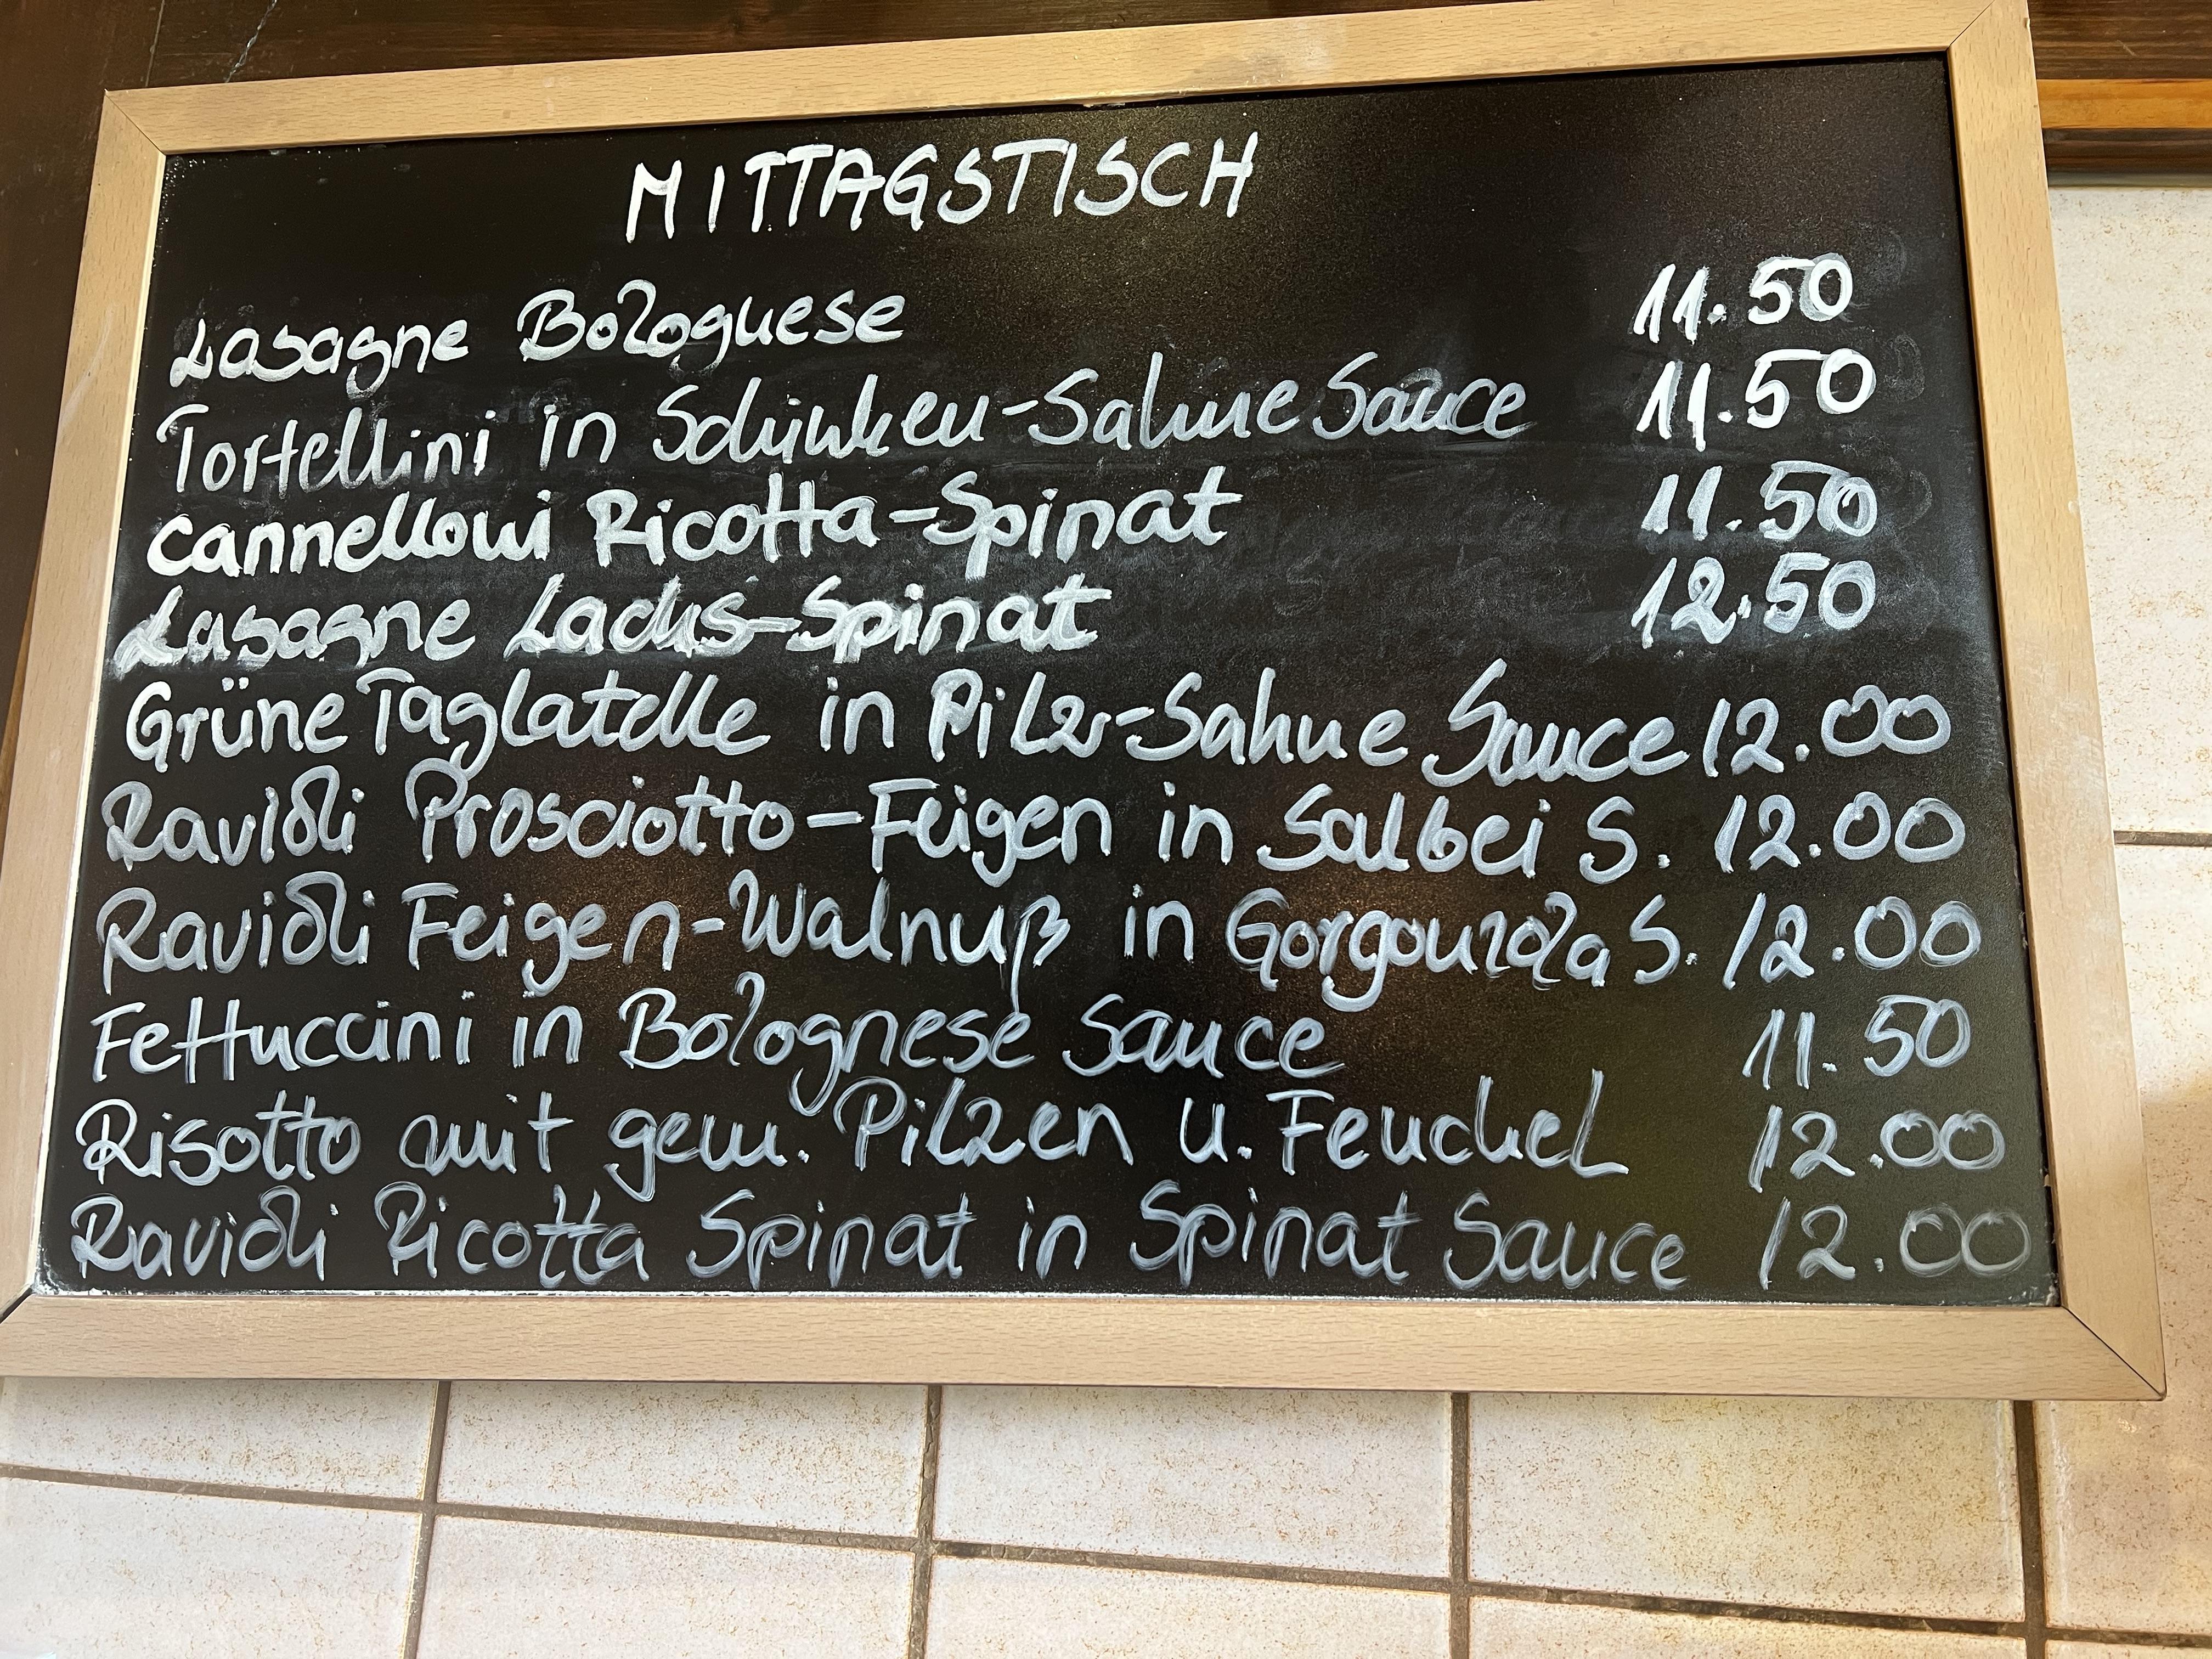 MITTAGSTISCH
Lasagne Bolognese 11.50
Tortellini in Schinken-Sahne Sauce 11.50
Cannelloni Ricotta-Spinat 11.50
Lasagne Lachs-Spinat 12.50
Grüne Taglatelle in Pilz-Sahne Sauce 12.00
Ravioli Prosciotto-Feigen in Salbei S. 12.00
Ravioli Feigen-Walnuß in Gorgonzola S. 12.00
Fettuccini in Bolognese Sauce 11.50
Risotto mit gem. Pilzen u. Fenchel 12.00
Ravioli Ricotta Spinat in Spinat Sauce 12.00